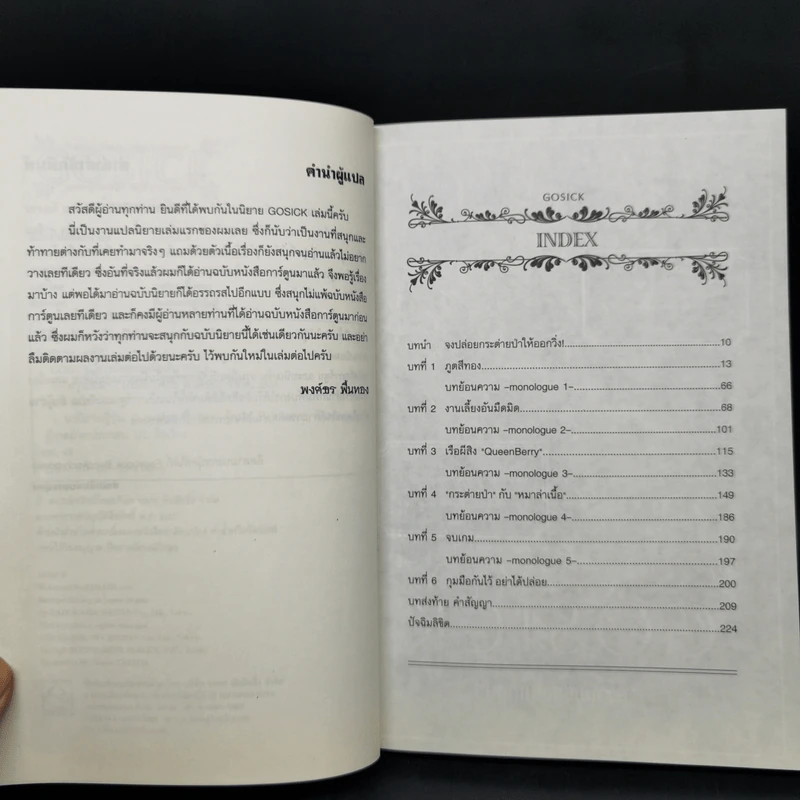 คำนำผู้แปล
สวัสดีผู้อ่านทุกท่าน ยินดีที่ได้พบกันในนิยาย GOSICK เล่มนี้ครับ
นี่เป็นงานแปลนิยายเล่มแรกของผมเลย ซึ่งก็นับว่าเป็นงานที่สนุกและ
ท้าทายต่างกับที่เคยทำมาจริงๆ แถมด้วยตัวเนื้อเรื่องก็ยังสนุกจนอ่านแล้วไม่อยาก
วางเลยทีเดียว ซึ่งอันที่จริงแล้วผมก็ได้อ่านฉบับหนังสือการ์ตูนมาแล้ว จึงพอรู้เรื่อง
มาบ้าง แต่พอได้มาอ่านฉบับนิยายก็ได้อรรถรสไปอีกแบบ ซึ่งสนุกไม่แพ้ฉบับหนังสือ
การ์ตูนเลยทีเดียว และก็คงมีผู้อ่านหลายท่านที่ได้อ่านฉบับหนังสือการ์ตูนมาก่อน
แล้ว ซึ่งผมก็หวังว่าทุกท่านจะสนุกกับฉบับนิยายนี้ได้เช่นเดียวกันนะครับ และอย่า
ลืมติดตามผลงานเล่มต่อไปด้วยนะครับ ไว้พบกันใหม่ในเล่มต่อไปครับ
พงศ์ธร ฟื้นทอง
GOSICK
INDEX
บทนำ จงปล่อยกระต่ายป่าให้ออกวิ่ง!.....10
บทที่ 1 ภูตสีทอง.....13
บทย้อนความ -monologue 1-.....66
บทที่ 2 งานเลี้ยงอันมืดมิด.....68
บทย้อนความ -monologue 2-.....101
บทที่ 3 เรือผีสิง "QueenBerry".....115
บทย้อนความ -monologue 3-.....133
บทที่ 4 "กระต่ายป่า" กับ "หมาล่าเนื้อ".....149
บทย้อนความ -monologue 4-.....186
บทที่ 5 จบเกม.....190
บทย้อนความ -monologue 5-.....197
บทที่ 6 กุมมือกันไว้ อย่าได้ปล่อย.....200
บทส่งท้าย คำสัญญา.....209
ปัจฉิมลิขิต.....224